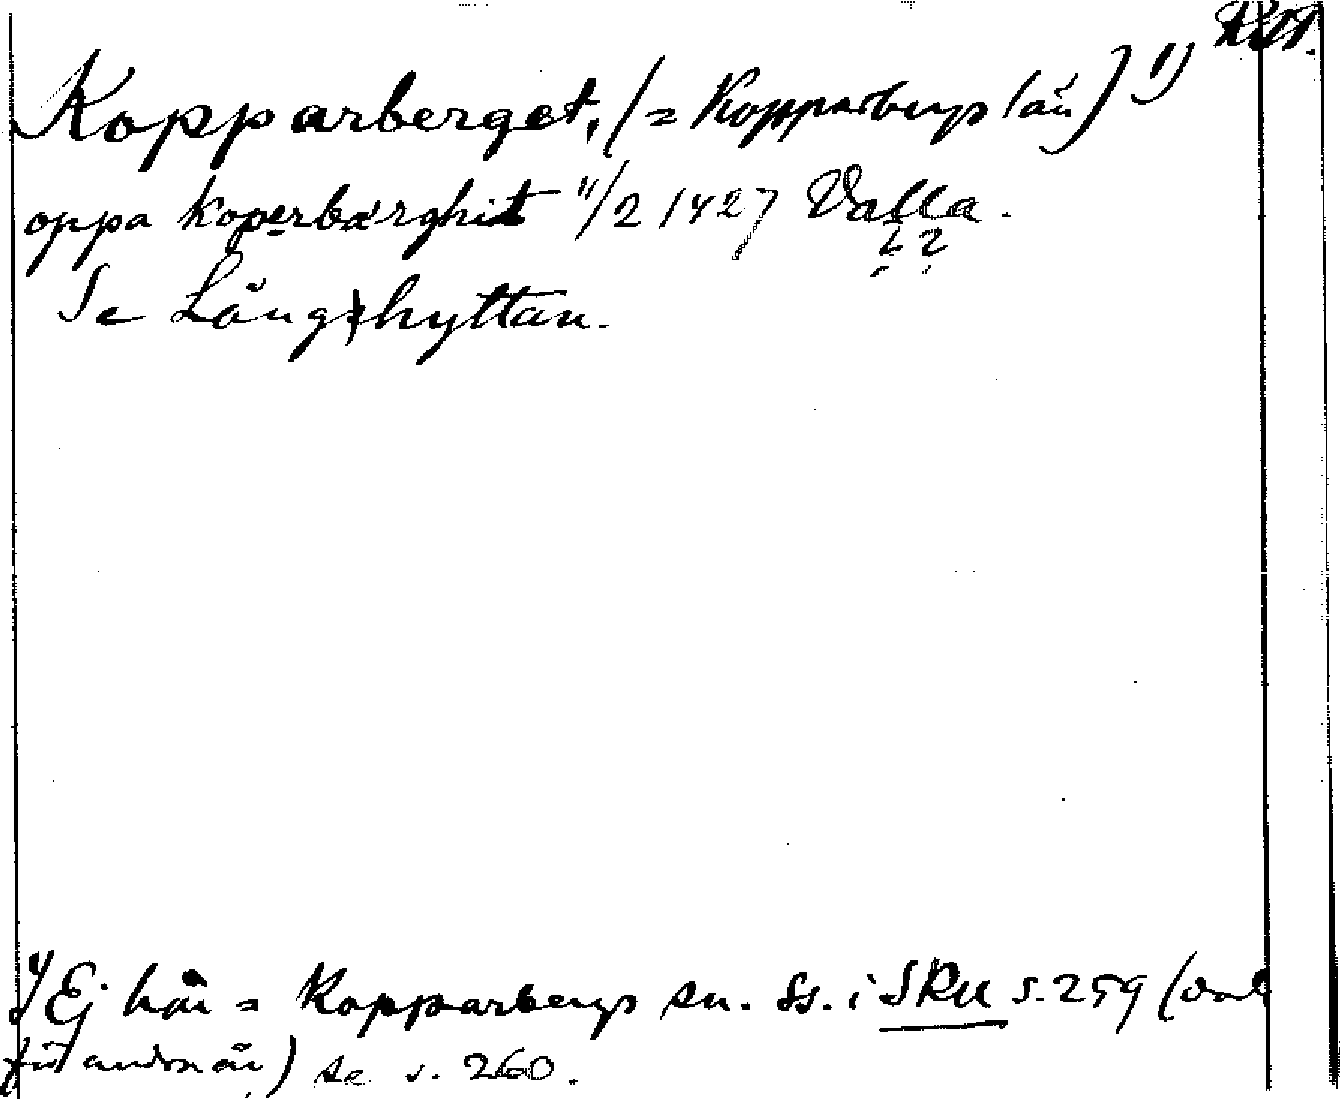 Kopparberget, (= Kopparbergs län) 1)
oppa koperbærghit 11/2 1427 Valla.
Se Långshyttan.
1) Ej här = Kopparbergs sn. Ss. i SRU s. 259
se s. 260.